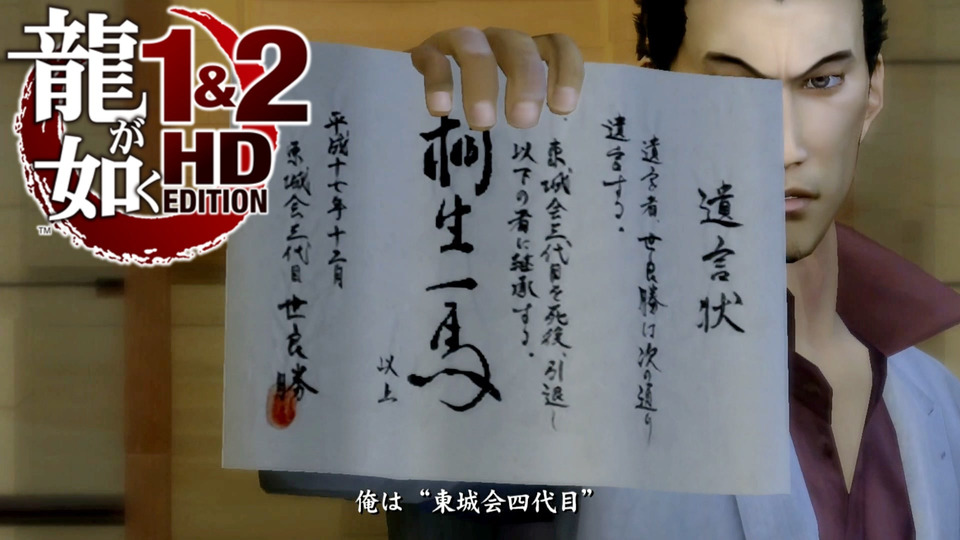 龍が如く
1&2
HD
EDITION
TM
遺言状
遺言者、世良勝は次の通り
遺言する。
、東城会三代目を死後、引退し
以下の者に継承する。
桐生一馬
以上
平成十七年十二月
東城会三代目 世良勝
俺は“東城会四代目”